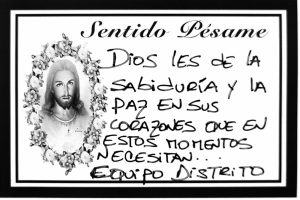 Sentido Pésame
DIOS LES DE LA
SABIDURÍA Y LA
PAZ EN SUS
CORAZONES QUE EN
ESTOS MOMENTOS
NECESITAN...
EQUIPO DISTRITO